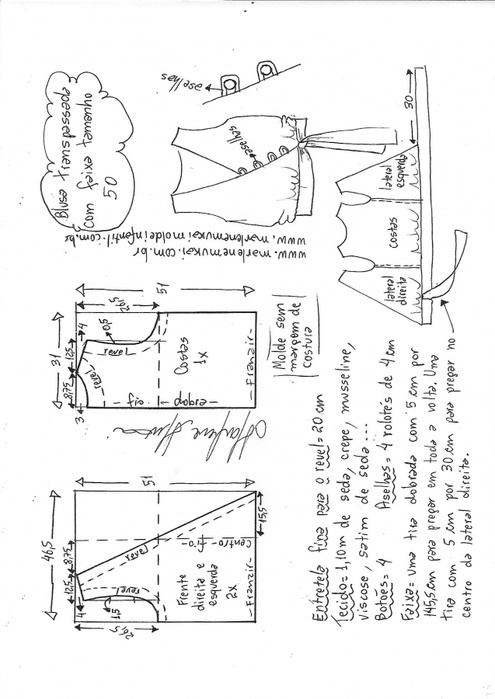 Blusa transpassada
com faixa tamanho
50
aselhas
aselhas
www.marlenemukai.com.br
www.marlenemukaimoldeinfantil.com.br
lateral
direita
costas
lateral
esquerda
30
31
3
8,75
12,5
4
revel
revel
0,5
26,5
51
Costas
1x
fio
dobra
Franzir
Molde sem
margem de
costura
Marlene Mukai
46,5
12,5
8,75
4
revel
revel
1,5
26,5
51
Frente
direita e
esquerda
2x
Centro
fio
Franzir
15,5
Entretela fina para o revel = 20 cm
Tecido = 1,10 m de seda, crepe, musseline,
viscose, satim de seda...
Botões = 4 Aselhas = 4 rolotês de 4 cm
Faixa = uma tira dobrada com 5 cm por
145,5 cm para pregar em toda a volta. Uma
tira com 5 cm por 30 cm para pregar no
centro da lateral direita.